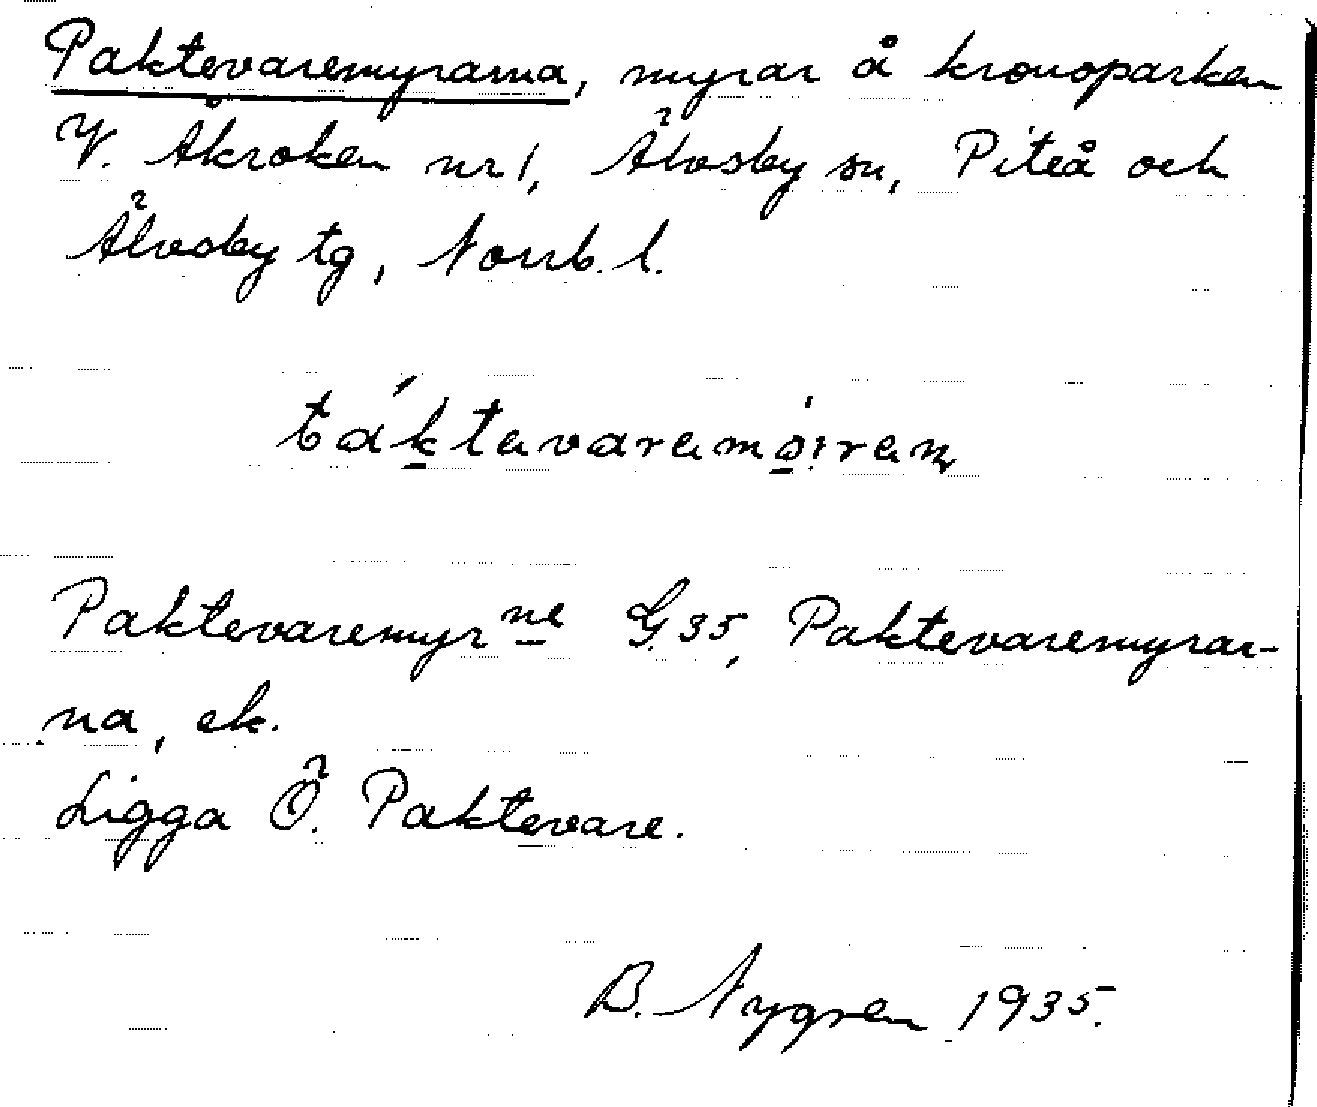 Paktevaremyrarna, myrar å kronoparken
V. Åkroken nr 1, Älvsby sn, Piteå och
Älvsby tg, Norrb. l.
táktavaramo̱i̇ran
Paktevaremyrne G. 35, Paktevaremyrar-
na, ek.
Ligga Ö. Paktevare.
B. Nygren 1935.